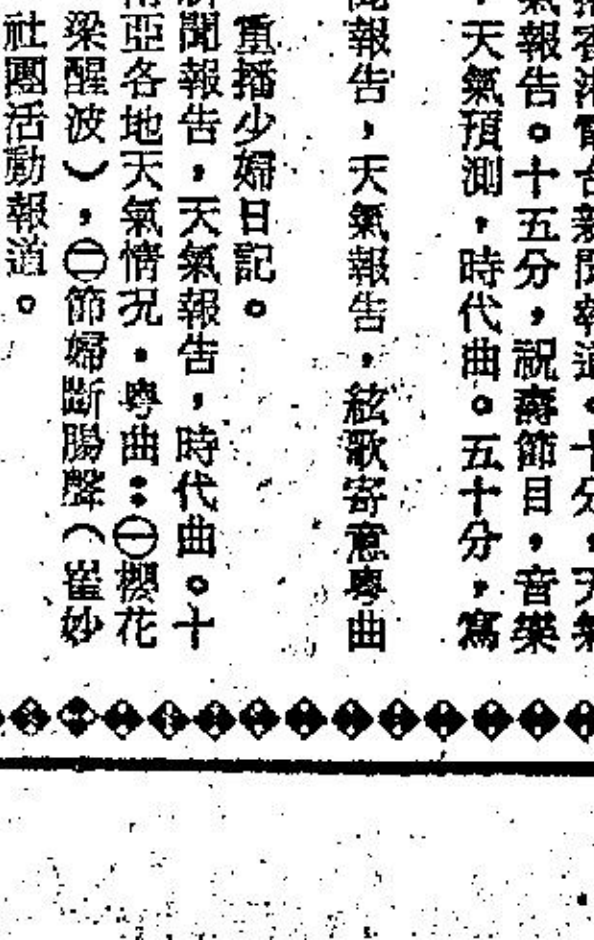 播香港電台新聞報道。十分，天氣
氣報告。十五分，祝壽節目，音樂
，天氣預測，時代曲。五十分，寫
聞報告，天氣報告，絃歌寄意粵曲
重播少婦日記。
新聞報告，天氣報告，時代曲。十
南亞各地天氣情況，粵曲：㊀櫻花
梁醒波），㊁節婦斷腸聲（崔妙
社團活動報道。